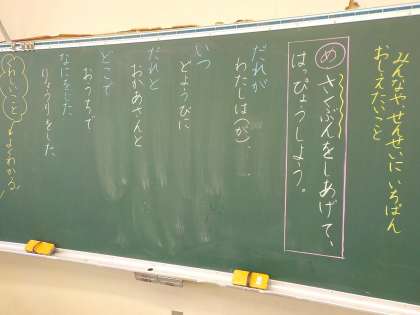 みんなやせんせいにいちばん
おしえたいこと
め さくぶんをしあげて、
はっぴょうしよう。
だれが
わたしは(が)…
いつ
どようびに
だれと
おかあさんと
どこで
おうちで
なにをした
りょうりをした
くわしいこと
→よくわかる!